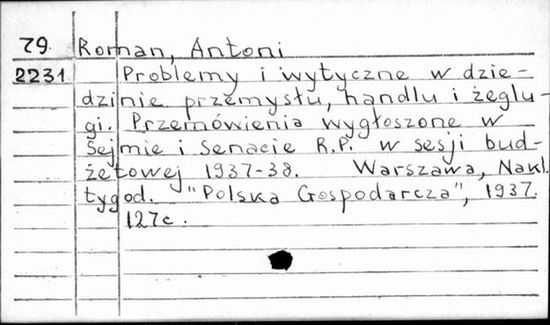 79 Roman, Antoni
2231 Problemy i wytyczne w dzie-
dzinie przemysłu, handlu i żeglu-
gi. Przemówienia wygłoszone w
Sejmie i Senacie R.P. w sesji bud-
żetowej 1937-38. Warszawa, Nakł.
tygod. "Polska Gospodarcza", 1937.
127c.